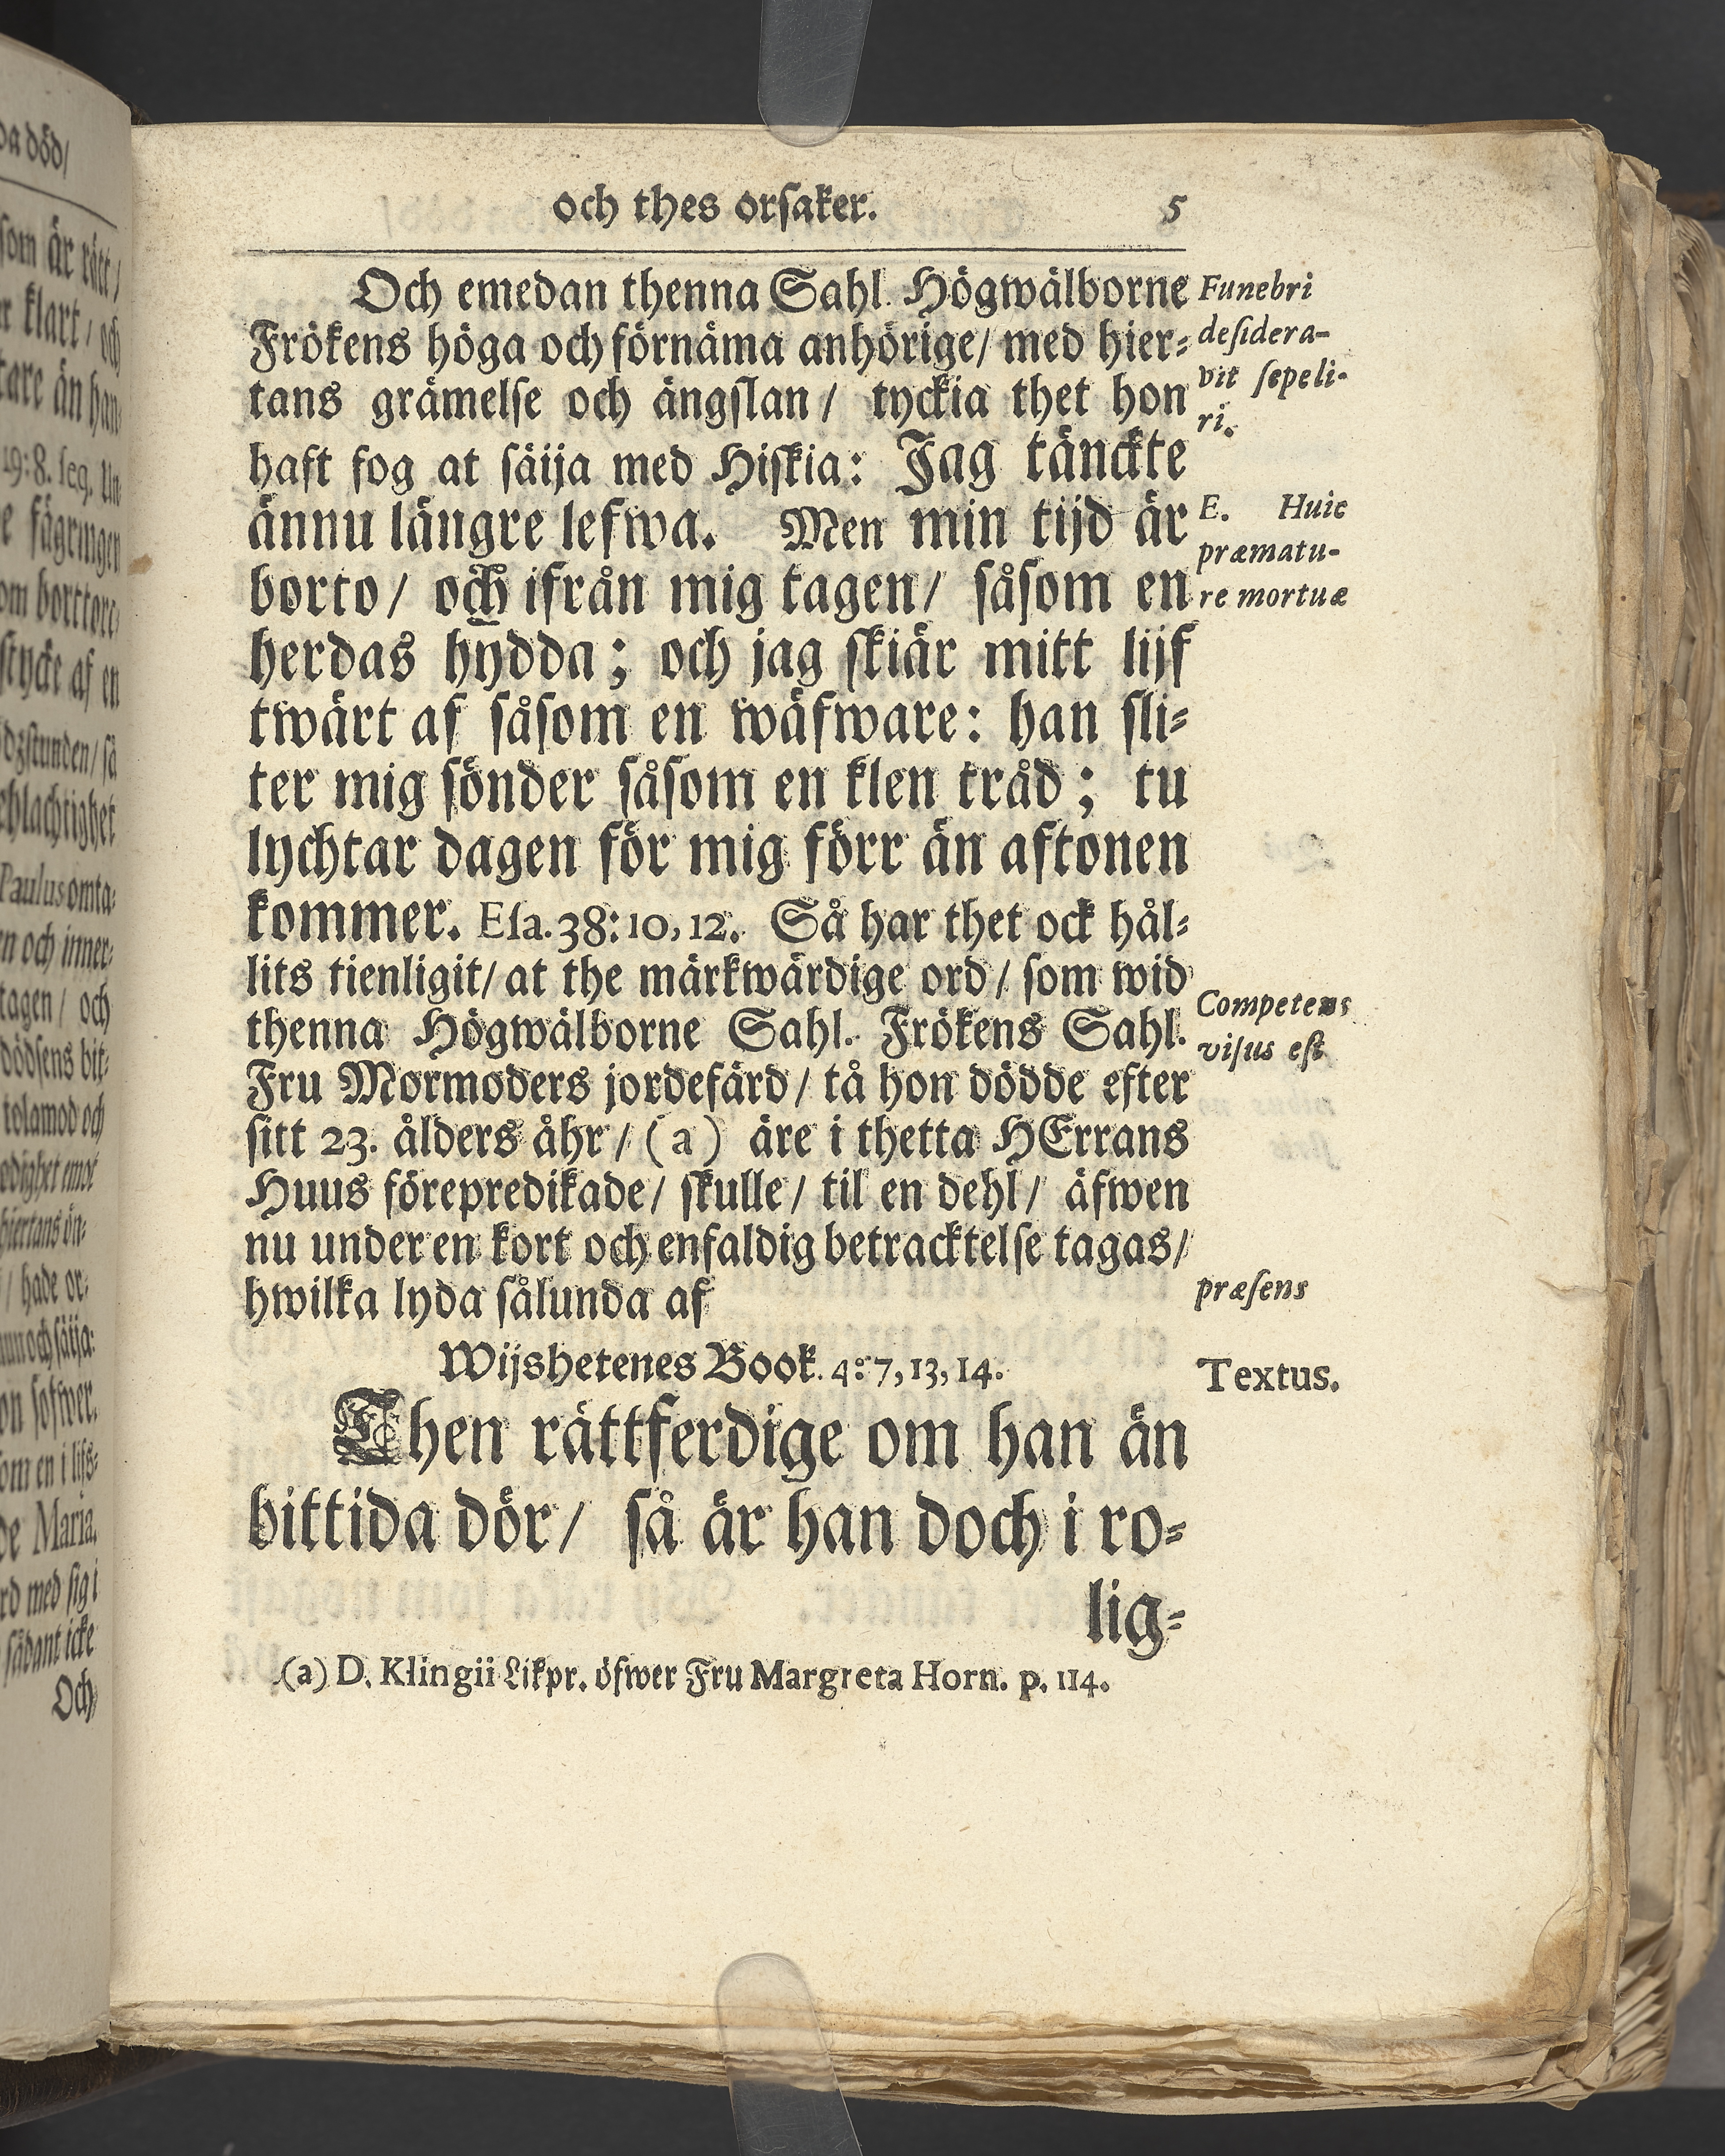 och thes orsaker. 5
Och emedan thenna Sahl. Högwälborne
Frökens höga och förnäma anhörige/ med hier-
tans grämelse och ängslan/ tyckia thet hon
haft fog at säija med Hiskia: Jag tänckte
ännu längre lefwa. Men min tijd är
borto/ och ifrån mig tagen/ såsom en
herdas hydda; och jag skiär mitt lijf
twärt af såsom en wäfware: han sli-
ter mig sönder såsom en klen tråd; tu
lychtar dagen för mig förr än aftonen
kommer. Esa. 38: 10, 12. Så har thet ock hål-
lits tienligit/ at the märkwärdige ord/ som wid
thenna Högwälborne Sahl. Frökens Sahl.
Fru Mormoders jordefärd/ tå hon dödde efter
sitt 23. ålders åhr/ (a) äre i thetta HErrans
Huus förepredikade/ skulle/ til en dehl/ äfwen
nu under en kort och enfaldig betracktelse tagas/
hwilka lyda sålunda af
Wijshetenes Book. 4: 7, 13, 14.
Then rättferdige om han än
bittida dör/ så är han doch i ro-
lig-
(a) D. Klingii Likpr. öfwer Fru Margreta Horn. p. 114.
Funebri
desidera-
vit sepeli-
ri.
E. Huic
præmatu-
re mortuæ
Competens
visus est
præsens
Textus.
da död/
som är rätt/
klart/ och
tare än han
19:8. seq.
fägringen
stycke af en
Paulus omta-
och inner-
tagen/ och
dödsens bit-
tolamod och
hade or-
Maria.
med sig i
sådant icke
Och